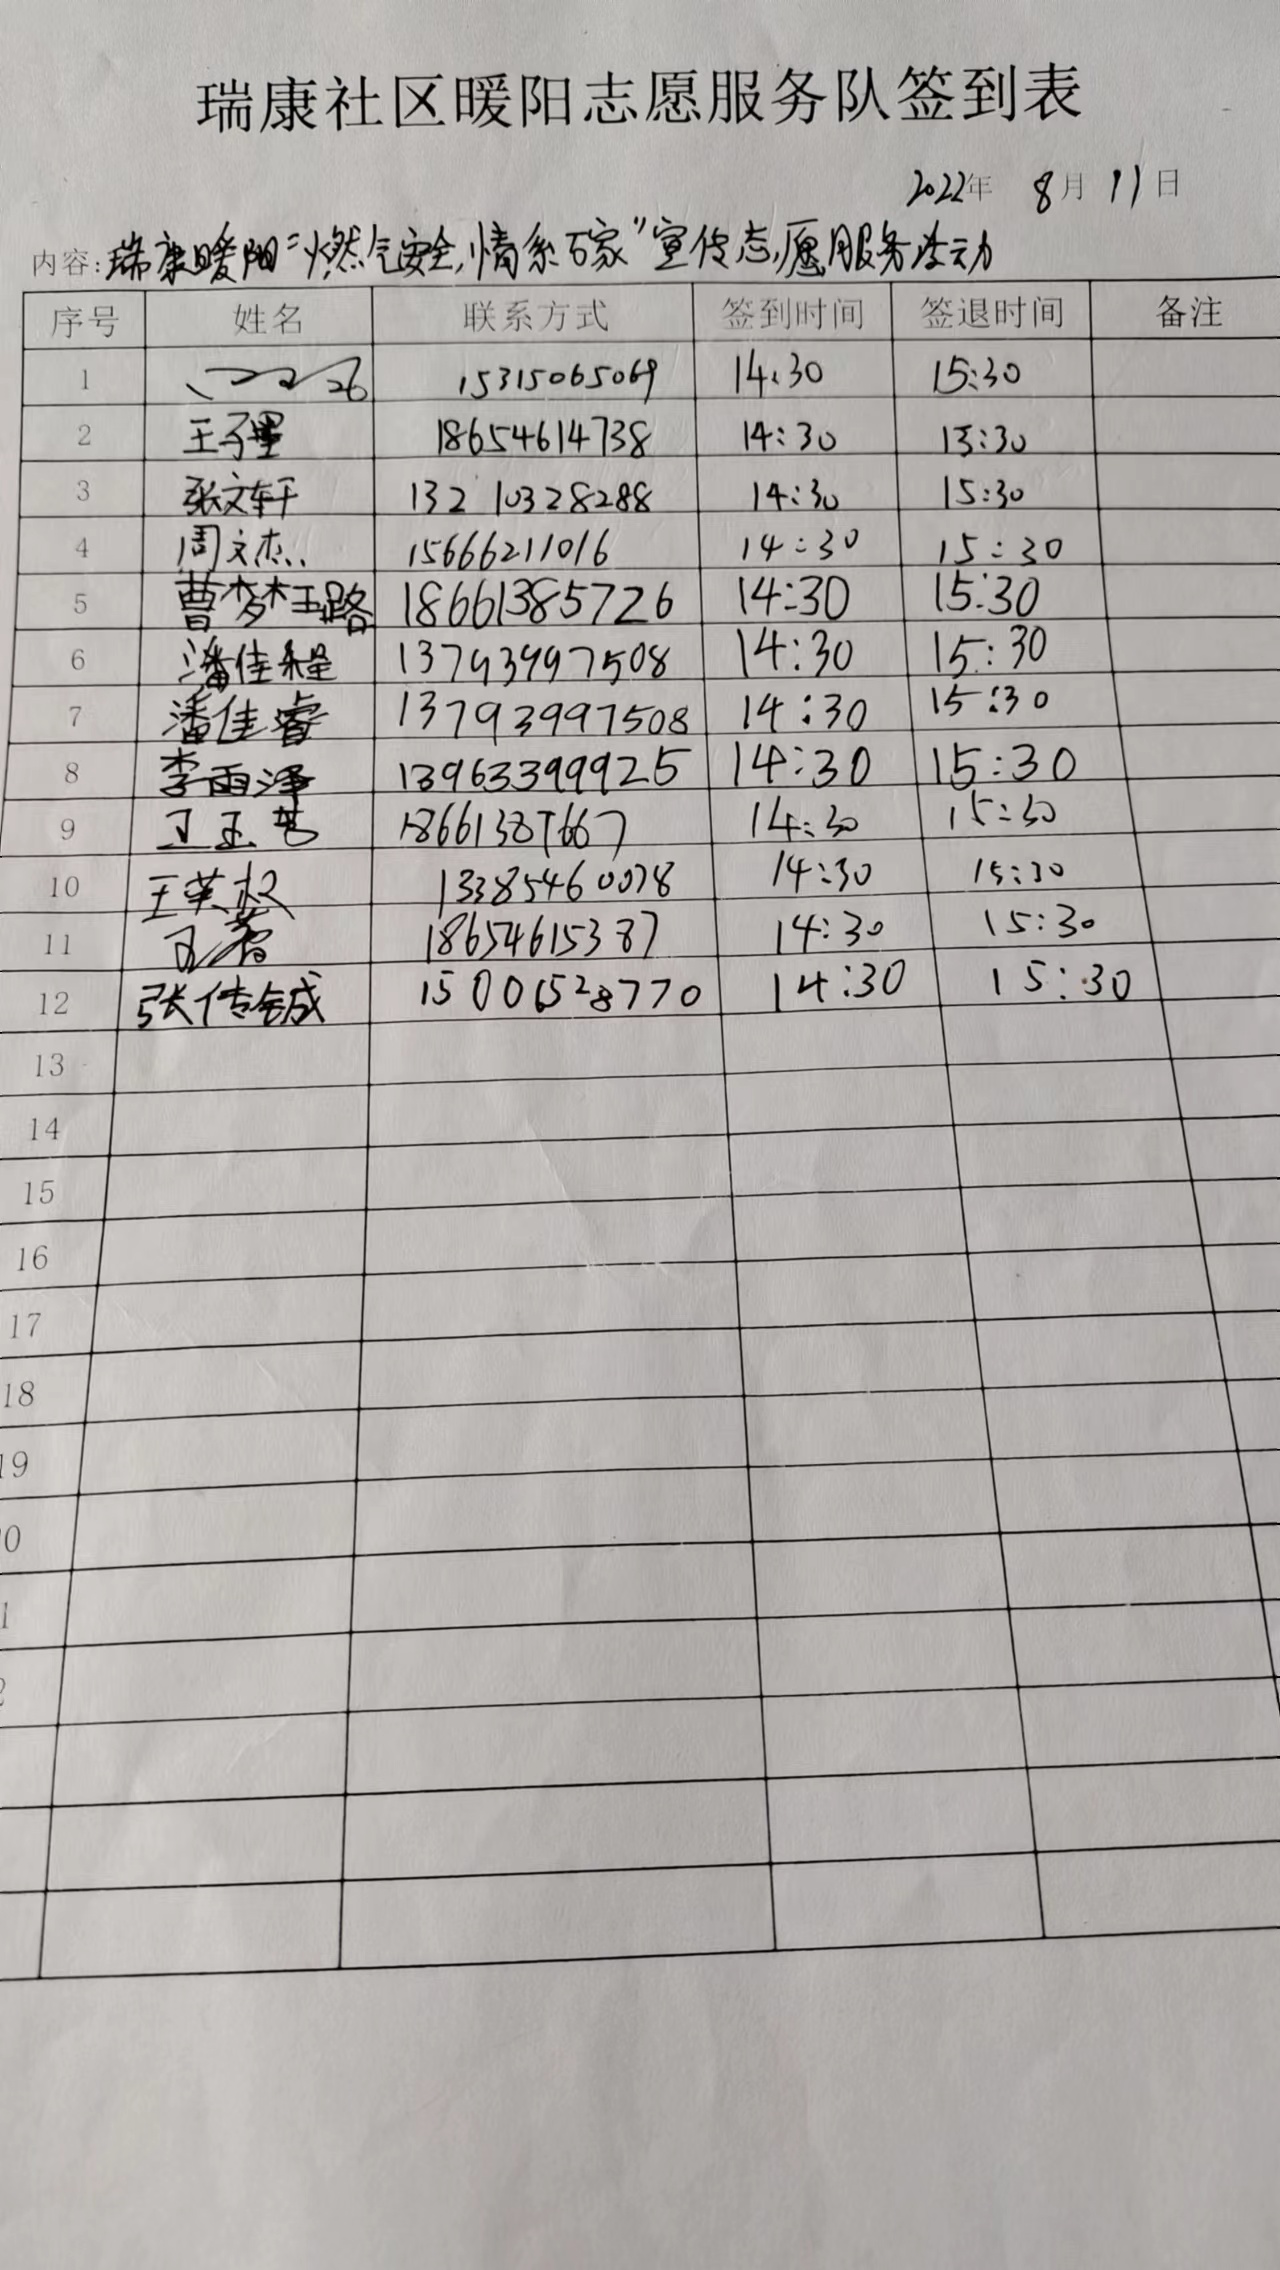 瑞康社区暖阳志愿服务队签到表
2022年 8月 11日
内容:瑞康暖阳“燃气安全,情系万家”宣传志愿服务活动
序号 姓名 联系方式 签到时间 签退时间 备注
1 15315065069 14:30 15:30
2 王子墨 18654614738 14:30 15:30
3 张文轩 132 10328288 14:30 15:30
4 周文杰 15666211016 14:30 15:30
5 曹梦璐 18661385726 14:30 15:30
6 潘佳程 13793997508 14:30 15:30
7 潘佳睿 13793997508 14:30 15:30
8 李雨泽 13963399925 14:30 15:30
9 14:30 15:30
10 王英 13385460078 14:30 15:30
11 18654615387 14:30 15:30
12 张传铖 15006528770 14:30 15:30
13
14
15
16
17
18
19